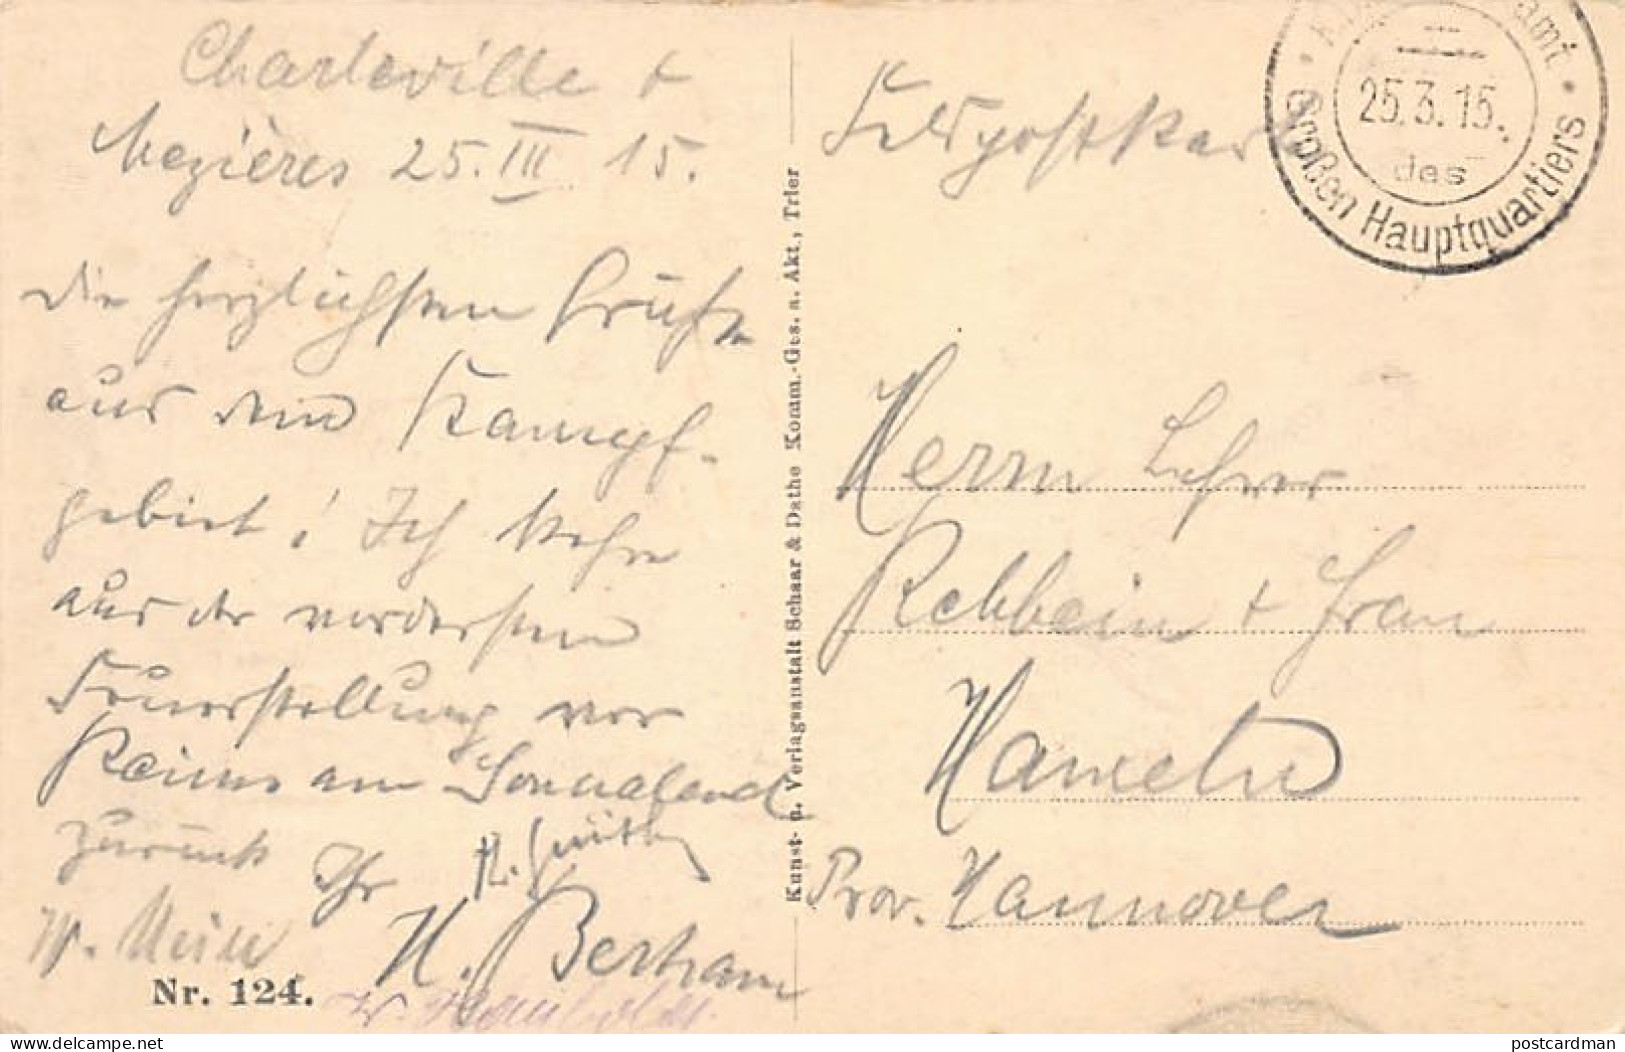 Charleville +
Mezières 25. III. 15.
Die herzlichsten Grüße
aus dem Kampf-
gebiet! Ich kehre
aus der vordersten
Feuerstellung vor
Reims am Sonnabend
zurück
Ihr
W. Meine
H. Bertram
Nr. 124.
Kunst- u. Verlagsanstalt Schaar & Dathe Komm.-Ges. a. Akt., Trier
Feldpostkarte
amt
25.3.15.
des
Großen Hauptquartiers
Herrn Lehrer
Rehbein + Frau
Hameln
Prov. Hannover
delcampe.net
postcardman